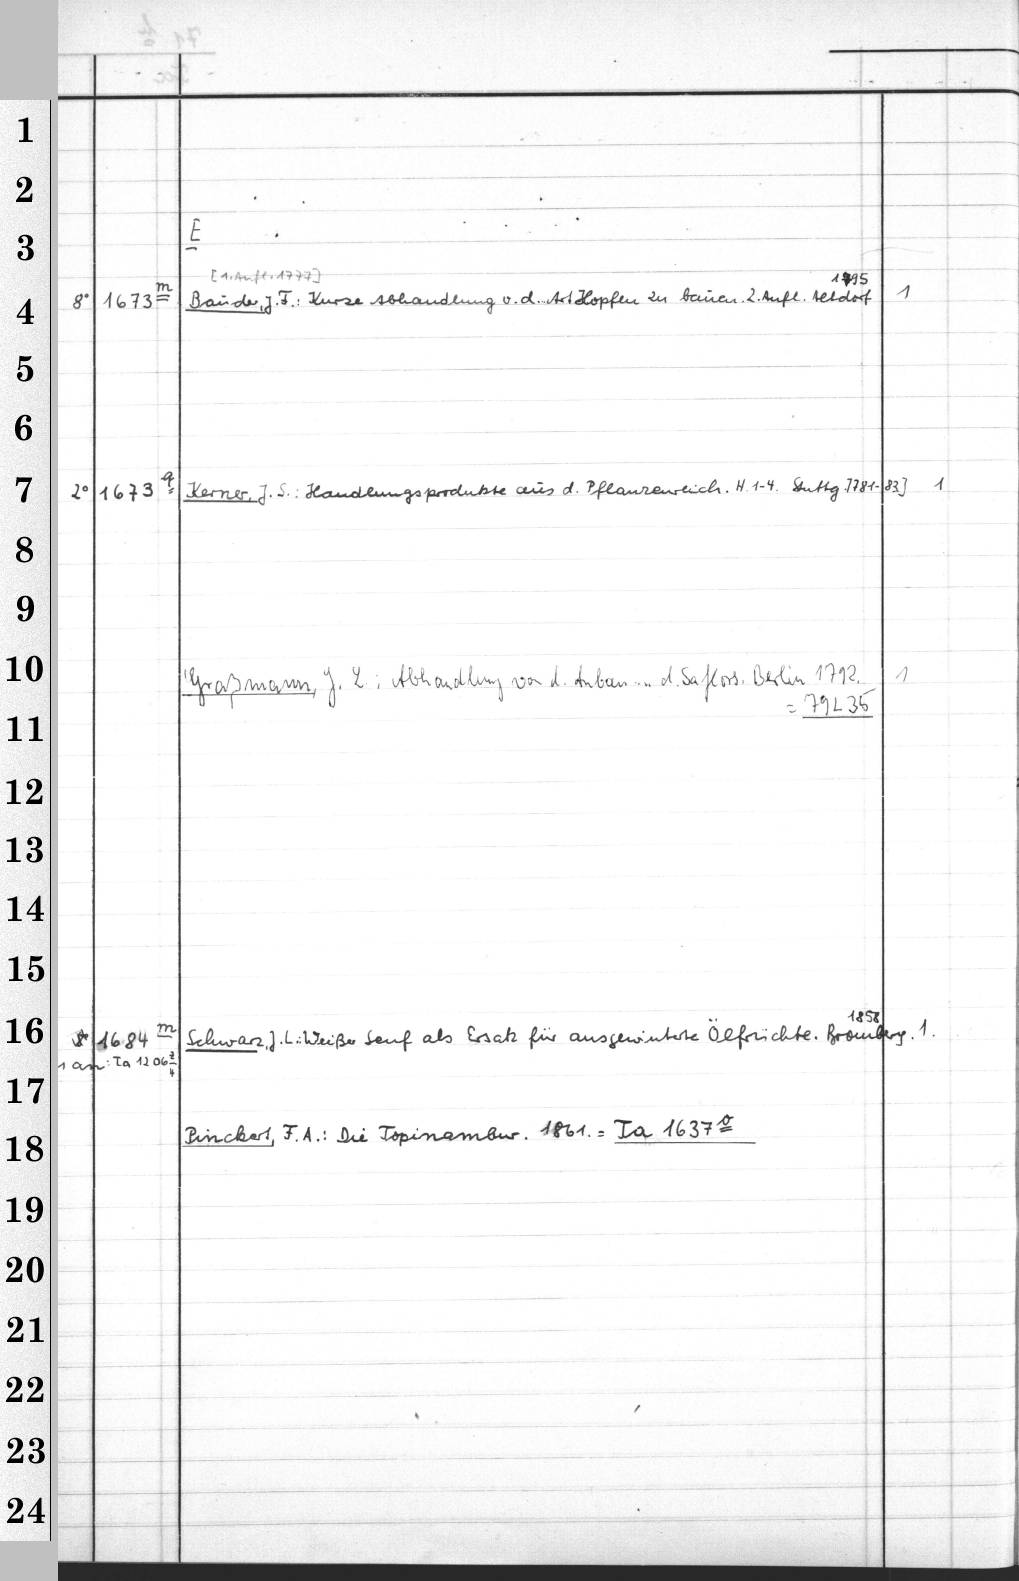 1
2
3
E
[1. Aufl. 1777]
1795
4
8° 1673 m Bauder, J. F.: Kurze Abhandlung v. d. Art Hopfen zu bauen. 2. Aufl. Altdorf 1
5
6
7
2° 1673 q Kerner, J. S.: Handlungsprodukte aus d. Pflanzenreich. H. 1-4. Stuttg. [781-83] 1
8
9
10
Graßmann, J. L.: Abhandlung von d. Anbau ... d. Saflors. Berlin 1792. 1
= 79 L 35
11
12
13
14
15
1858
16
8° 1684 m Schwarz, J. L.: Weißer Senf als Ersatz für ausgewinterte Ölfrüchte. Bromberg. 1.
1 an: Ta 1206
17
18
Pinckert, F. A.: Die Topinambur. 1861. = Ta 1637 o
19
20
21
22
23
24